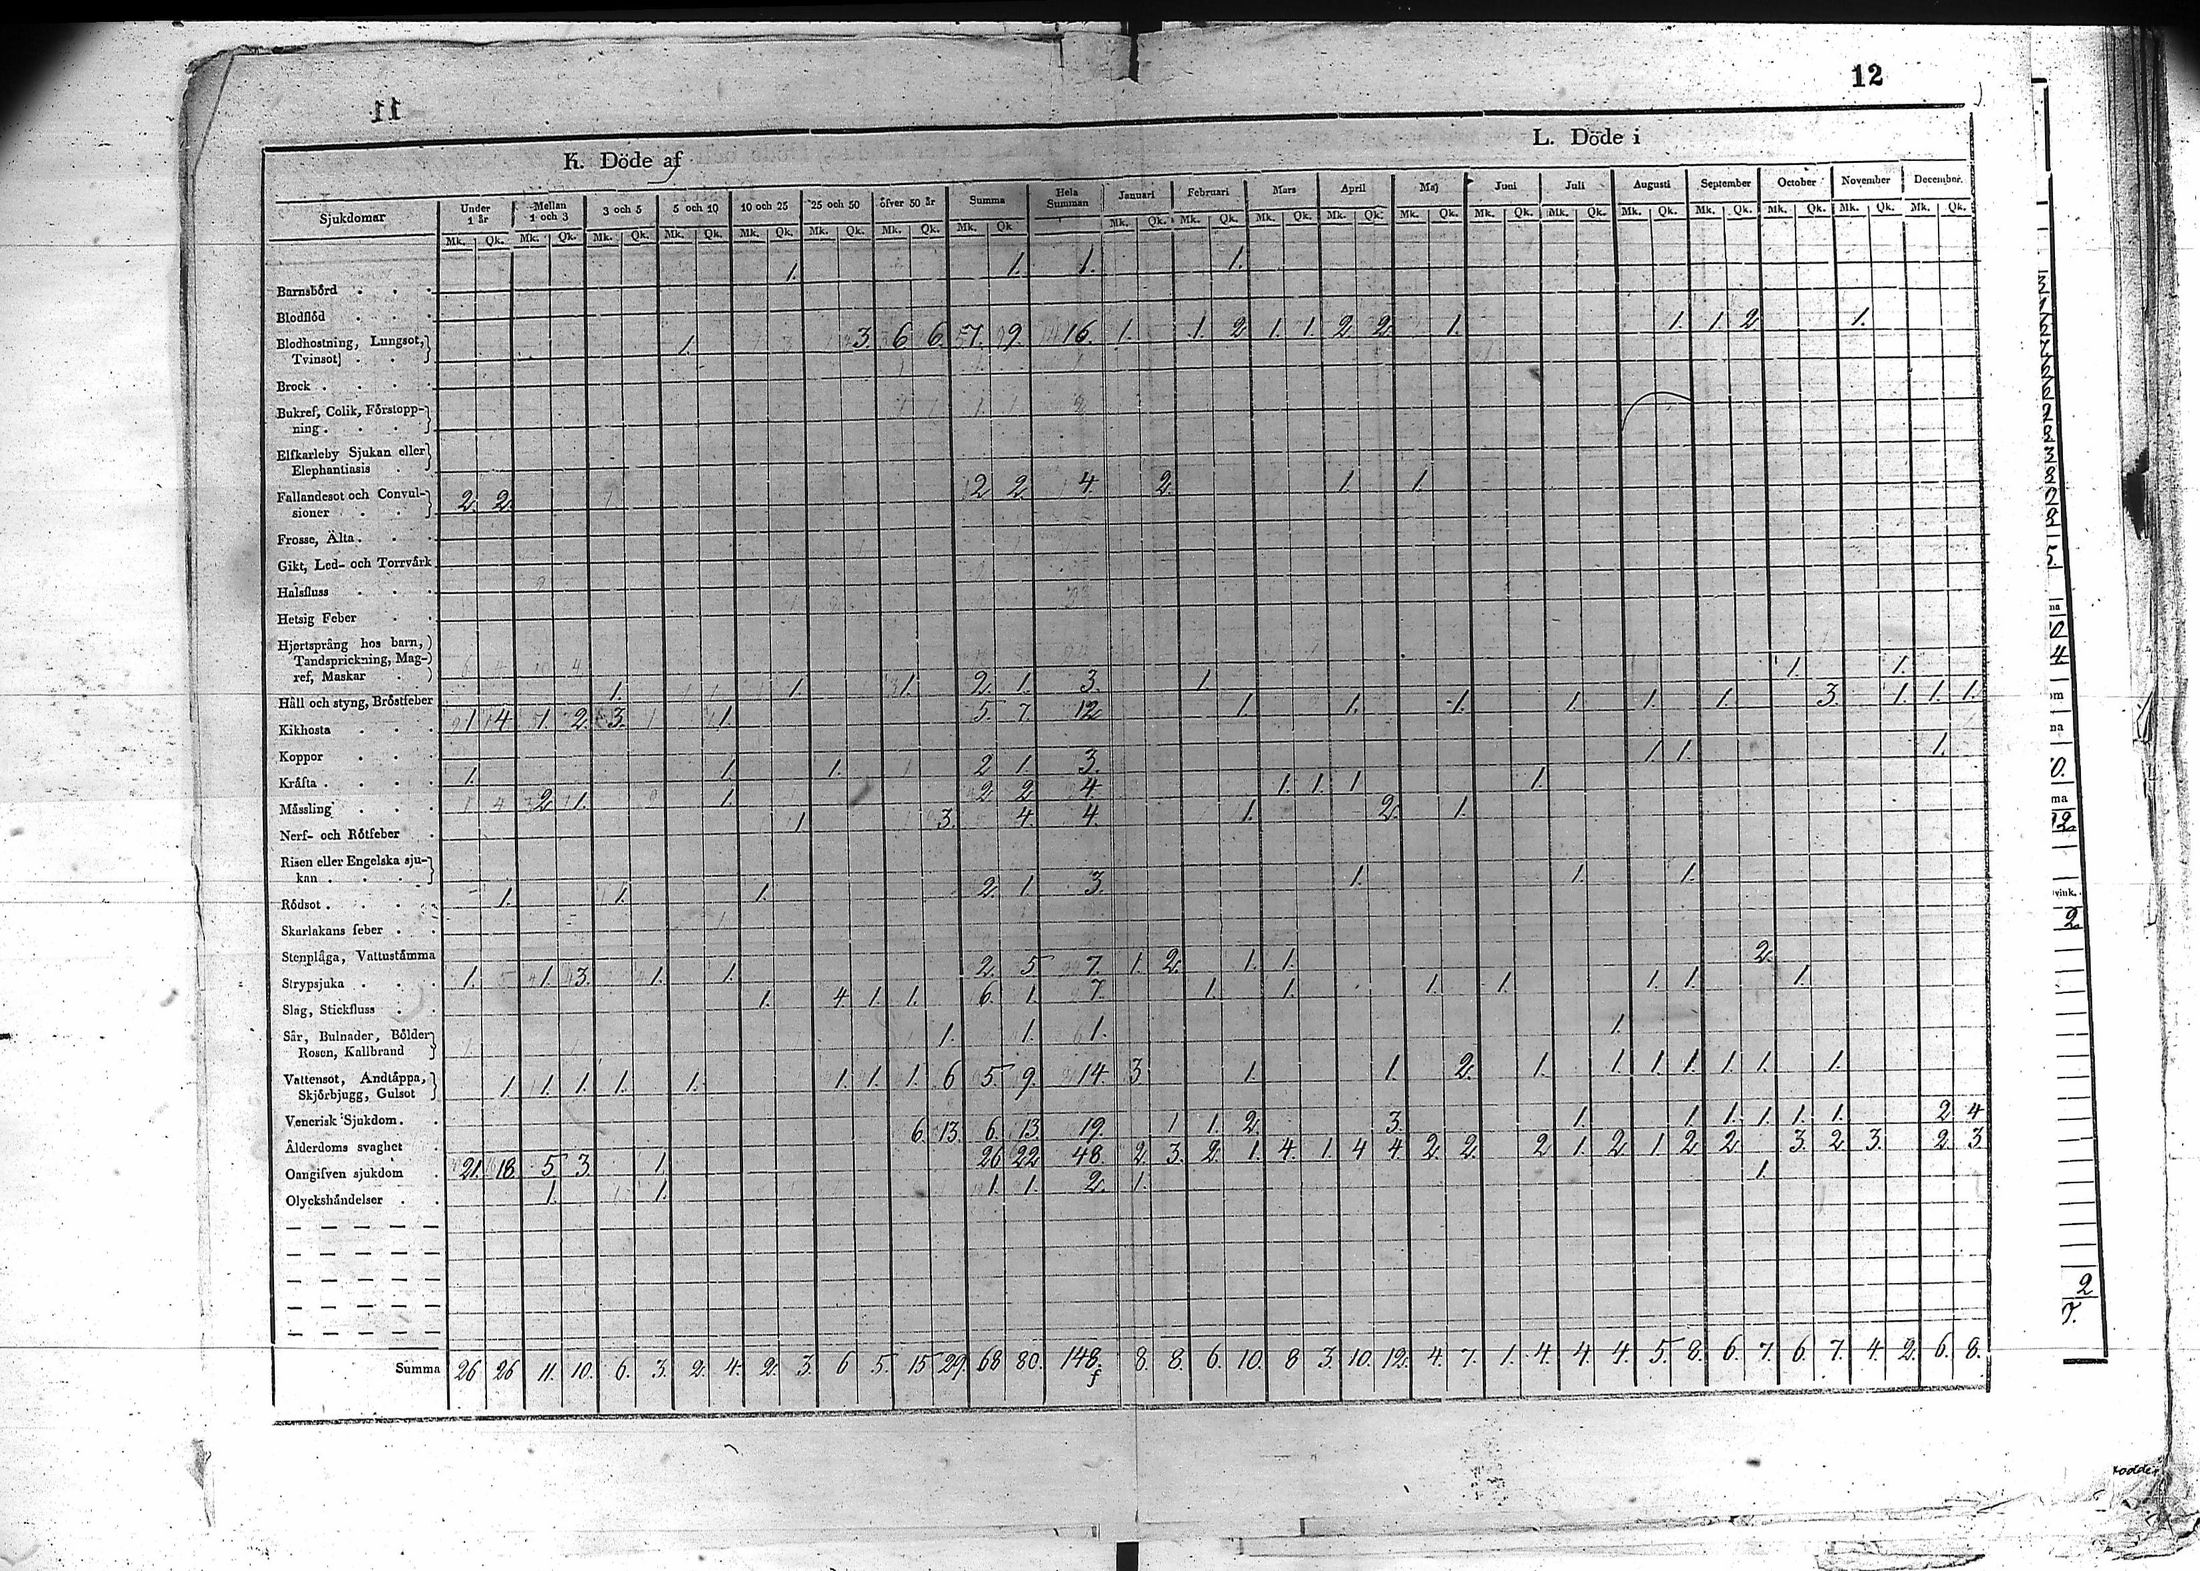 11
12
K. Döde af
L. Döde i
Sjukdomar Under 1 år Mellan 1 och 3 3 och 5 5 och 10 10 och 25 25 och 50 öfver 50 år Summa Hela Summan Januari Februari Mars April Maj Juni Juli Augusti September October November December.
Mk. Qk. Mk. Qk. Mk. Qk. Mk. Qk. Mk. Qk. Mk. Qk. Mk. Qk. Mk. Qk Mk. Qk. Mk. Qk. Mk. Qk. Mk. Qk. Mk. Qk. Mk. Qk. Mk. Qk. Mk. Qk. Mk. Qk. Mk. Qk. Mk. Qk. Mk. Qk.
Barnsbörd 1. 1. 1. 1.
Blodflöd
Blodhostning, Lungsot,
Tvinsot) 1. 3. 6 6. 7. 9. 16. 1. 1. 2 1. 1. 2. 2. 1. 1. 1. 2. 1.
Brock
Bukref, Colik, Förstopp-
ning
Elfkarleby Sjukan eller
Elephantiasis
Fallandesot och Convul-
sioner 2. 2. 2 2. 4. 2. 1. 1.
Frosse, Älta
Gikt, Led- och Torrvärk
Halsfluss
Hetsig Feber
Hjertsprång hos barn,
Tandsprickning, Mag-
ref, Maskar
Håll och styng, Bröstfeber 1. 1. 1. 2. 1. 3. 1. 1. 1.
Kikhosta 1. 4. 1. 2. 3. 1. 5. 7. 12 1. 1. 1. 1. 1. 1. 3. 1. 1. 1.
Koppor
Kräfta 1. 1. 1. 2 1. 3. 1. 1. 1.
Mässling 2. 1. 1. 2 2 4 1. 1. 1 1.
Nerf- och Rötfeber 1. 3. 4. 4. 1. 2. 1.
Risen eller Engelska sju-
kan
Rödsot 1. 1. 1. 2. 1 3 1. 1. 1.
Skarlakans feber
Stenplåga, Vattustämma
Strypsjuka 1. 1. 3. 1. 1. 2. 5 7. 1. 2. 1. 1. 2.
Slag, Stickfluss 1. 4. 1. 1. 6. 1. 7. 1. 1. 1. 1. 1. 1. 1.
Sår, Bulnader, Bölder
Rosen, Kallbrand 1. 1. 1. 1.
Vattensot, Andtäppa,
Skjörbjugg, Gulsot 1. 1. 1. 1. 1. 1. 1. 1. 6 5. 9. 14. 3 1. 1. 2. 1. 1. 1. 1. 1. 1. 1.
Venerisk Sjukdom
Ålderdoms svaghet 6. 13. 6. 13. 19. 1 1. 2. 3. 1. 1. 1. 1. 1. 1. 2. 4
Oangifven sjukdom 21. 18. 5 3. 1. 26 22 48. 2. 3. 2. 1. 4. 1. 4 4. 2. 2. 2 1. 2. 1 2. 2. 3. 2. 3. 2. 3
Olyckshändelser 1. 1. 1. 1. 2. 1. 1.
Summa 26 26 11. 10. 6. 3. 2. 4. 2. 3. 6 5. 15 29. 68 80. 148. 8. 8. 6. 10. 8 3. 10. 12. 4. 7. 1. 4. 4. 4. 5. 8. 6. 7. 6. 7. 4. 2. 6. 8.